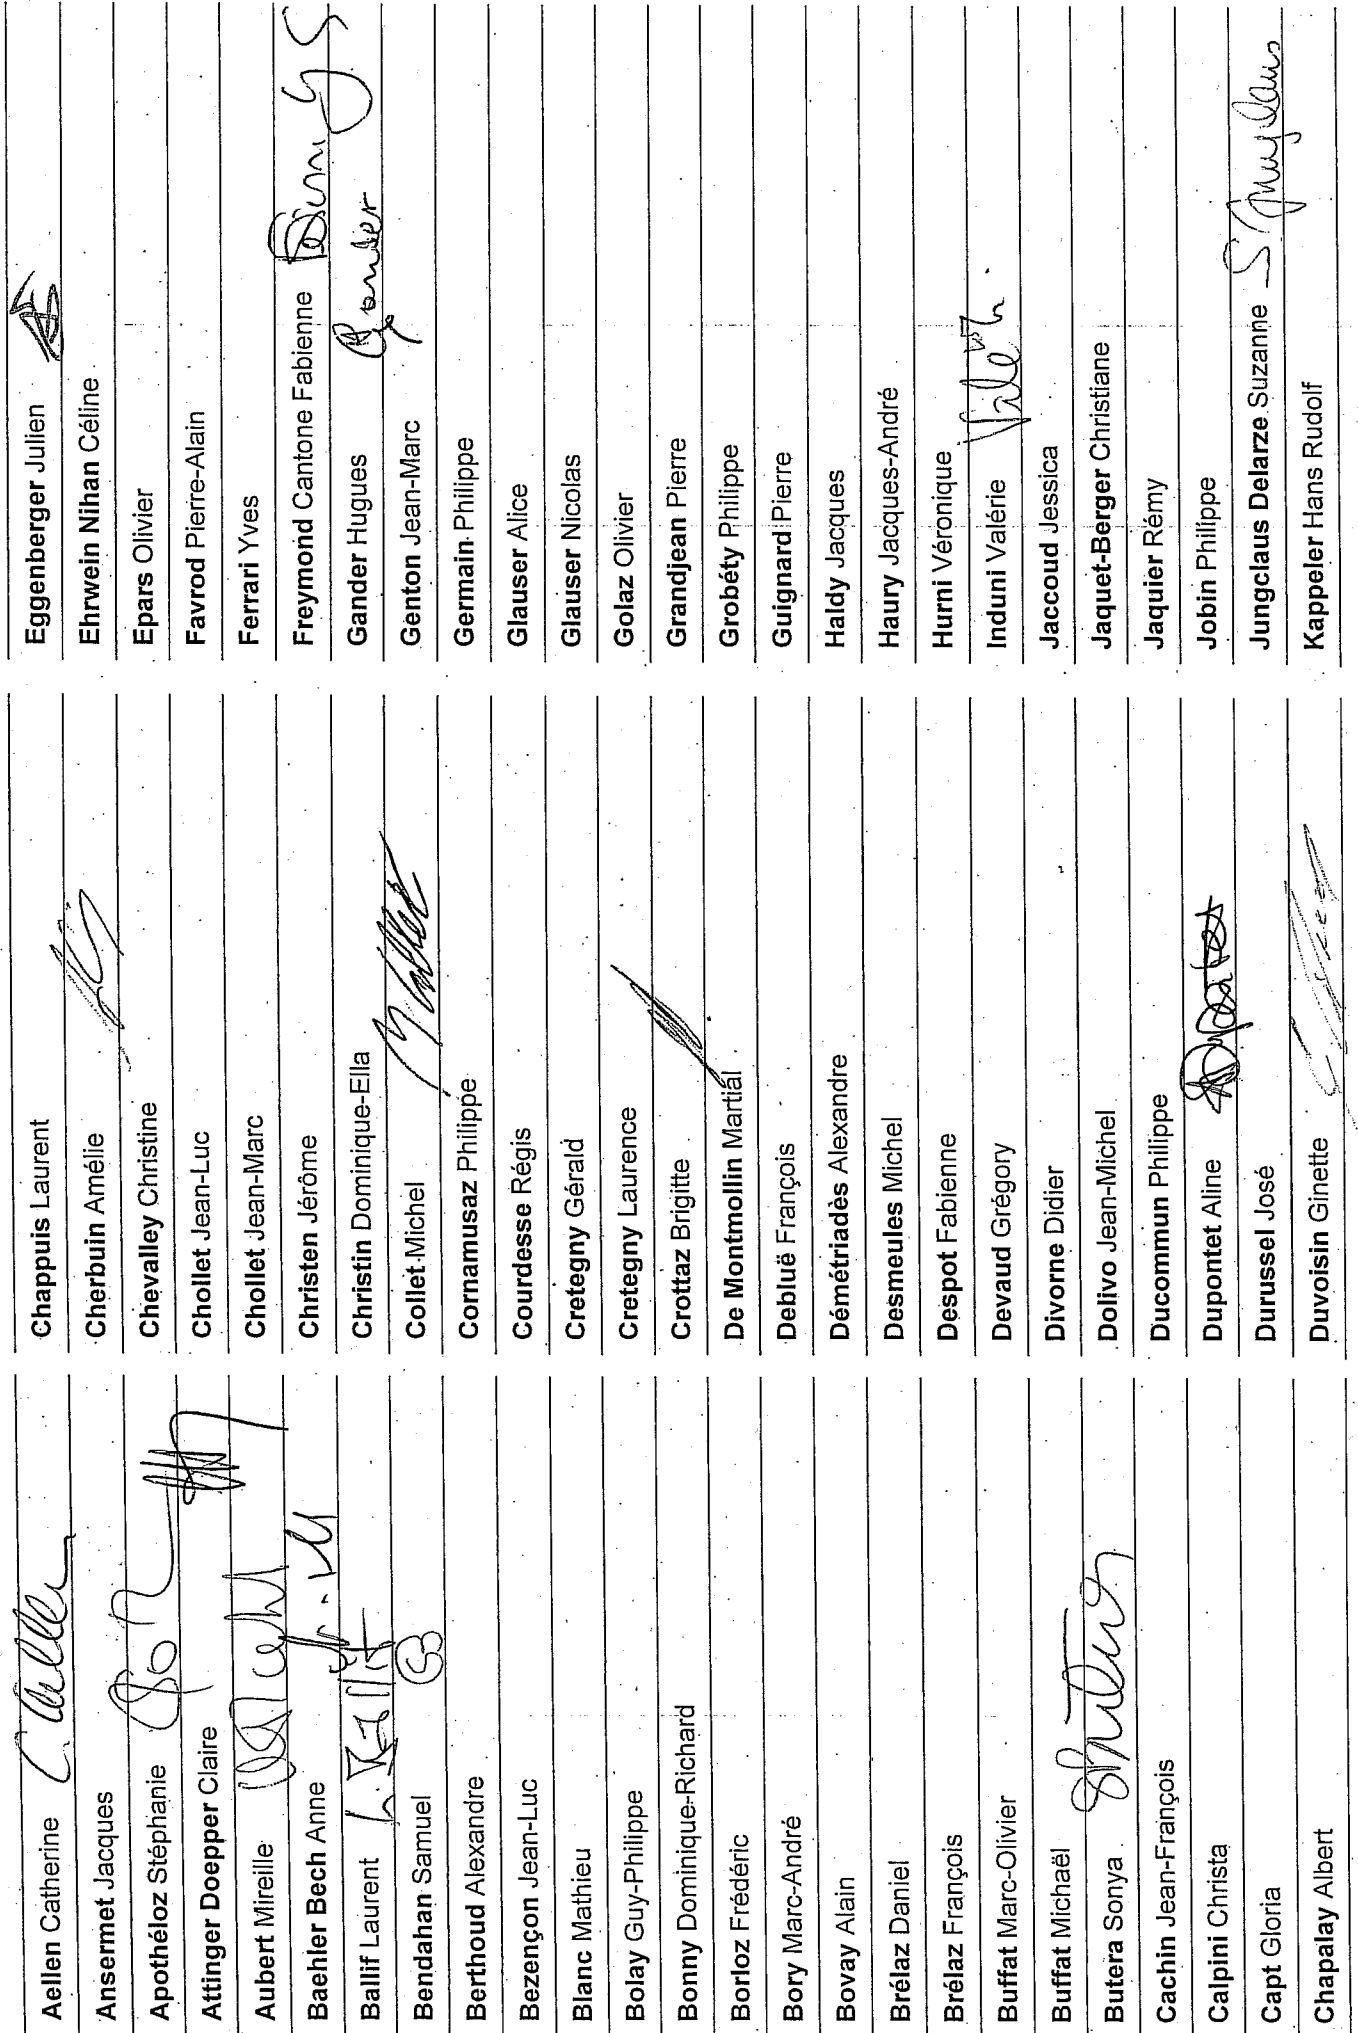 Aellen Catherine C. Aellen
Ansermet Jacques
Apothéloz Stéphanie
Attinger Doepper Claire
Aubert Mireille
Baehler Bech Anne
Ballif Laurent L. Ballif
Bendahan Samuel
Berthoud Alexandre
Bezençon Jean-Luc
Blanc Mathieu
Bolay Guy-Philippe
Bonny Dominique-Richard
Borloz Frédéric
Bory Marc-André
Bovay Alain
Brélaz Daniel
Brélaz François
Buffat Marc-Olivier
Buffat Michaël
Butera Sonya
Cachin Jean-François
Calpini Christa
Capt Gloria
Chapalay Albert
Chappuis Laurent
Cherbuin Amélie
Chevalley Christine
Chollet Jean-Luc
Chollet Jean-Marc
Christen Jérôme
Christin Dominique-Ella
Collet Michel
Cornamusaz Philippe
Courdesse Régis
Cretegny Gérald
Cretegny Laurence
Crottaz Brigitte
De Montmollin Martial
Debluë François
Démétriadès Alexandre
Desmeules Michel
Despot Fabienne
Devaud Grégory
Divorne Didier
Dolivo Jean-Michel
Ducommun Philippe
Dupontet Aline
Durussel José
Duvoisin Ginette
Eggenberger Julien
Ehrwein Nihan Céline
Epars Olivier
Favrod Pierre-Alain
Ferrari Yves
Freymond Cantone Fabienne
Gander Hugues Gander
Genton Jean-Marc
Germain Philippe
Glauser Alice
Glauser Nicolas
Golaz Olivier
Grandjean Pierre
Grobéty Philippe
Guignard Pierre
Haldy Jacques
Haury Jacques-André
Hurni Véronique
Induni Valérie
Jaccoud Jessica
Jaquet-Berger Christiane
Jaquier Rémy
Jobin Philippe
Jungclaus Delarze Suzanne
Kappeler Hans Rudolf